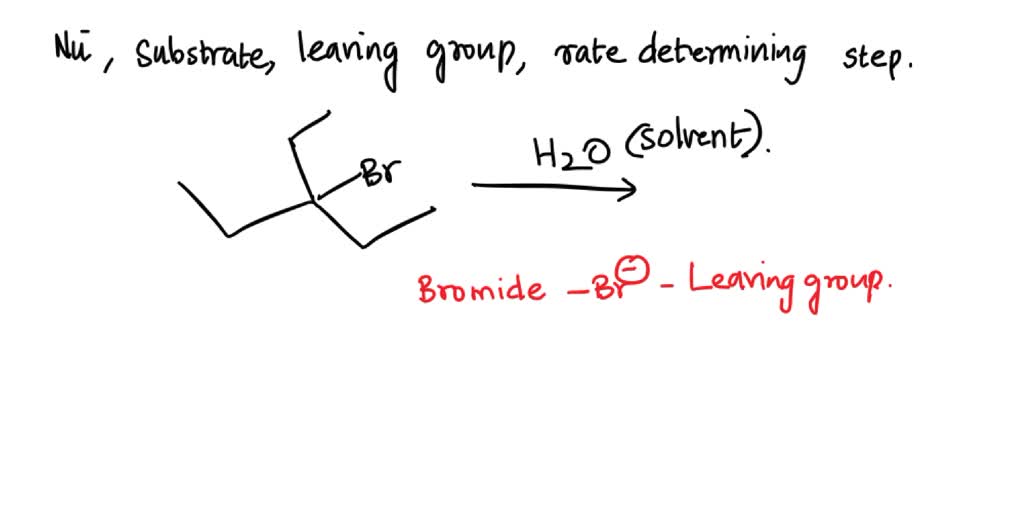 Nu⁻, Substrate, leaving group, rate determining step.
Br
H2O (solvent).
Bromide – Br⊖ – Leaving group.